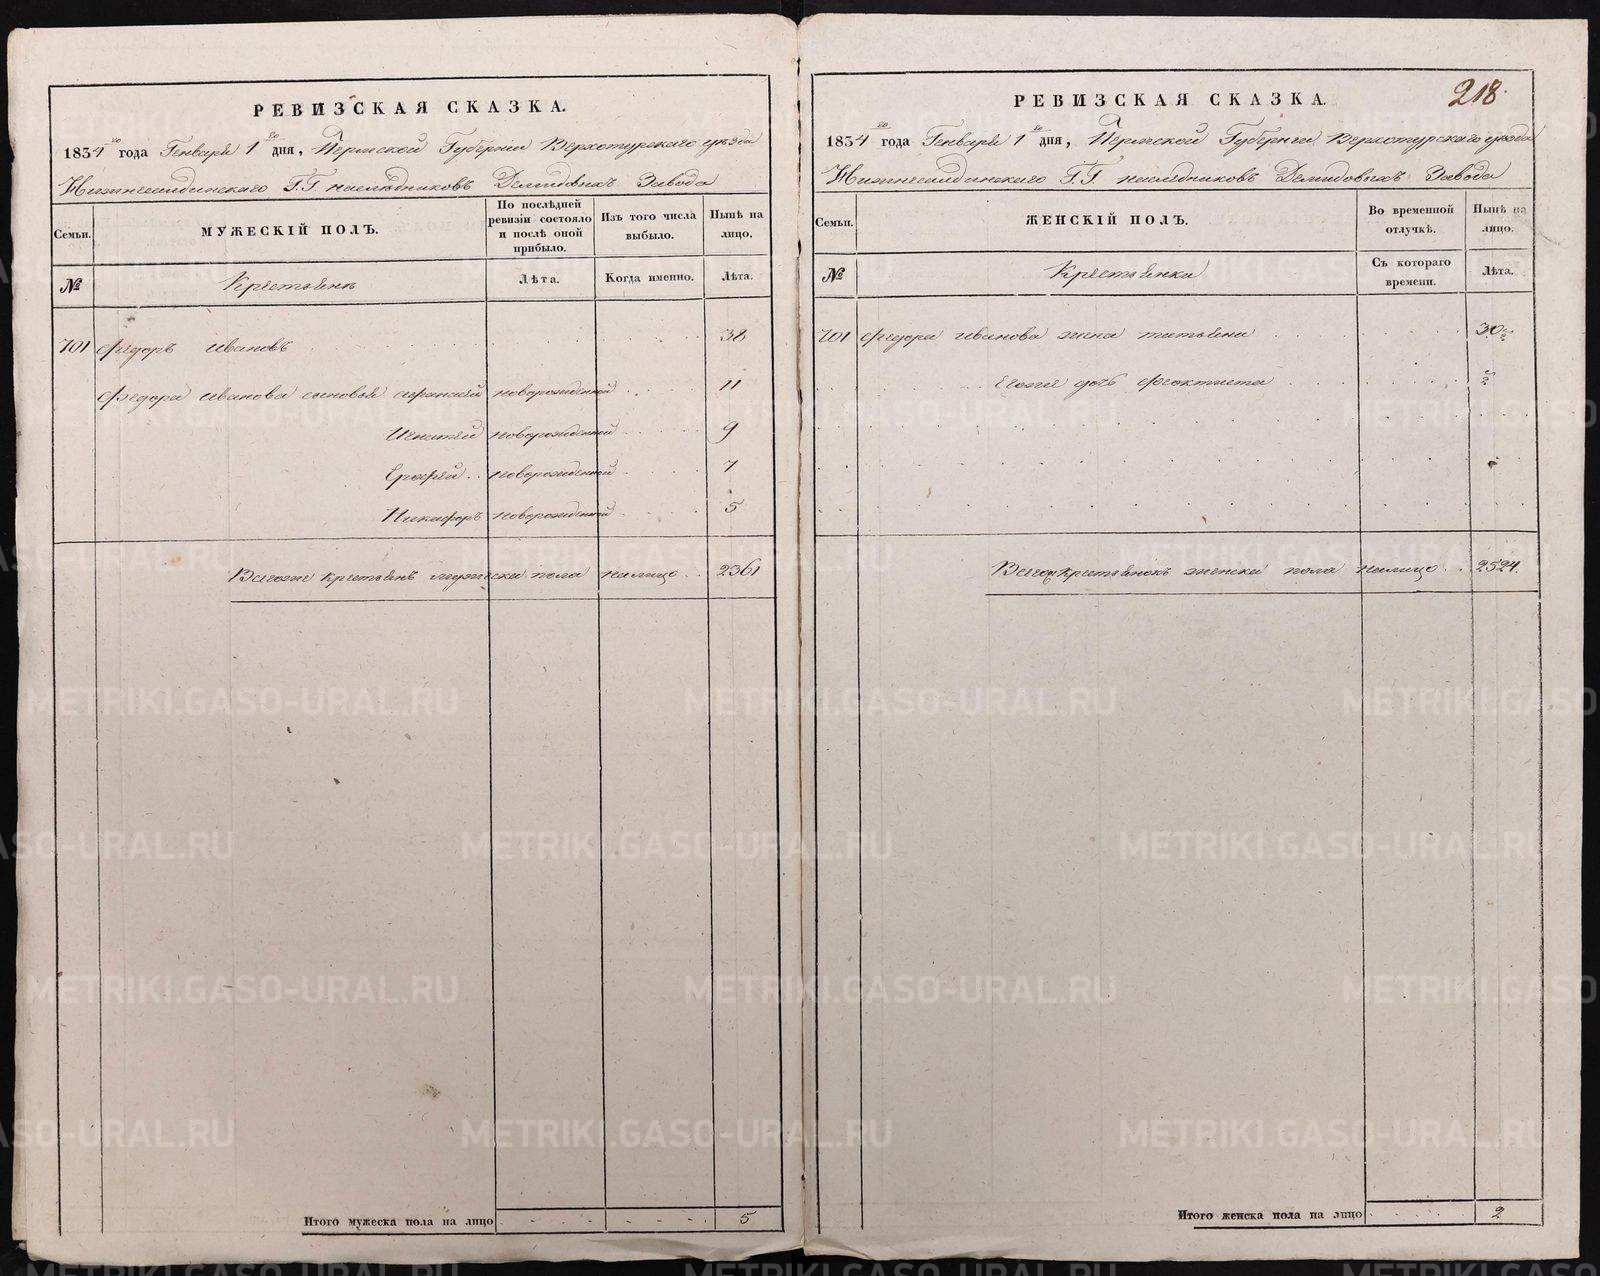 РЕВИЗСКАЯ СКАЗКА.
1834го года Генваря 1го дня, Пермской Губернии Верхотурскаго уезда
Нижнесалдинскаго Г.Г. наследниковъ Демидовыхъ Завода
Семьи.
МУЖЕСКІЙ ПОЛЪ.
По послѣдней ревизіи состояло и послѣ оной прибыло.
Изъ того числа выбыло.
Нынѣ на лицо.
№
Крестьянъ
Лѣта.
Когда именно.
Лѣта.
701 Федоръ Ивановъ 38
Федора Иванова сыновья новорожденной 11
Игнатей новорожденной 9
Ерофей новорожденной 7
Никифоръ новорожденной 5
Всегоже крестьянъ мужеска пола налицо 2361
Итого мужеска пола на лицо 5
218.
РЕВИЗСКАЯ СКАЗКА.
1834го года Генваря 1го дня, Пермской Губернии Верхотурскаго уезда
Нижнесалдинскаго Г.Г. наследниковъ Демидовыхъ Завода
Семьи.
ЖЕНСКІЙ ПОЛЪ.
Во временной отлучкѣ.
Нынѣ на лицо.
№
Крестьянки
Съ котораго времени.
Лѣта.
701 Федора Иванова жена Татьяна 30
дочь Феоктиста
крестьянокъ женска пола налицо 2524.
Итого женска пола на лицо 2
METRIKI.GASO-URAL.RU